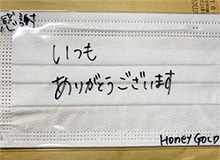 感謝
いつも
ありがとうございます
HONEY GOLD